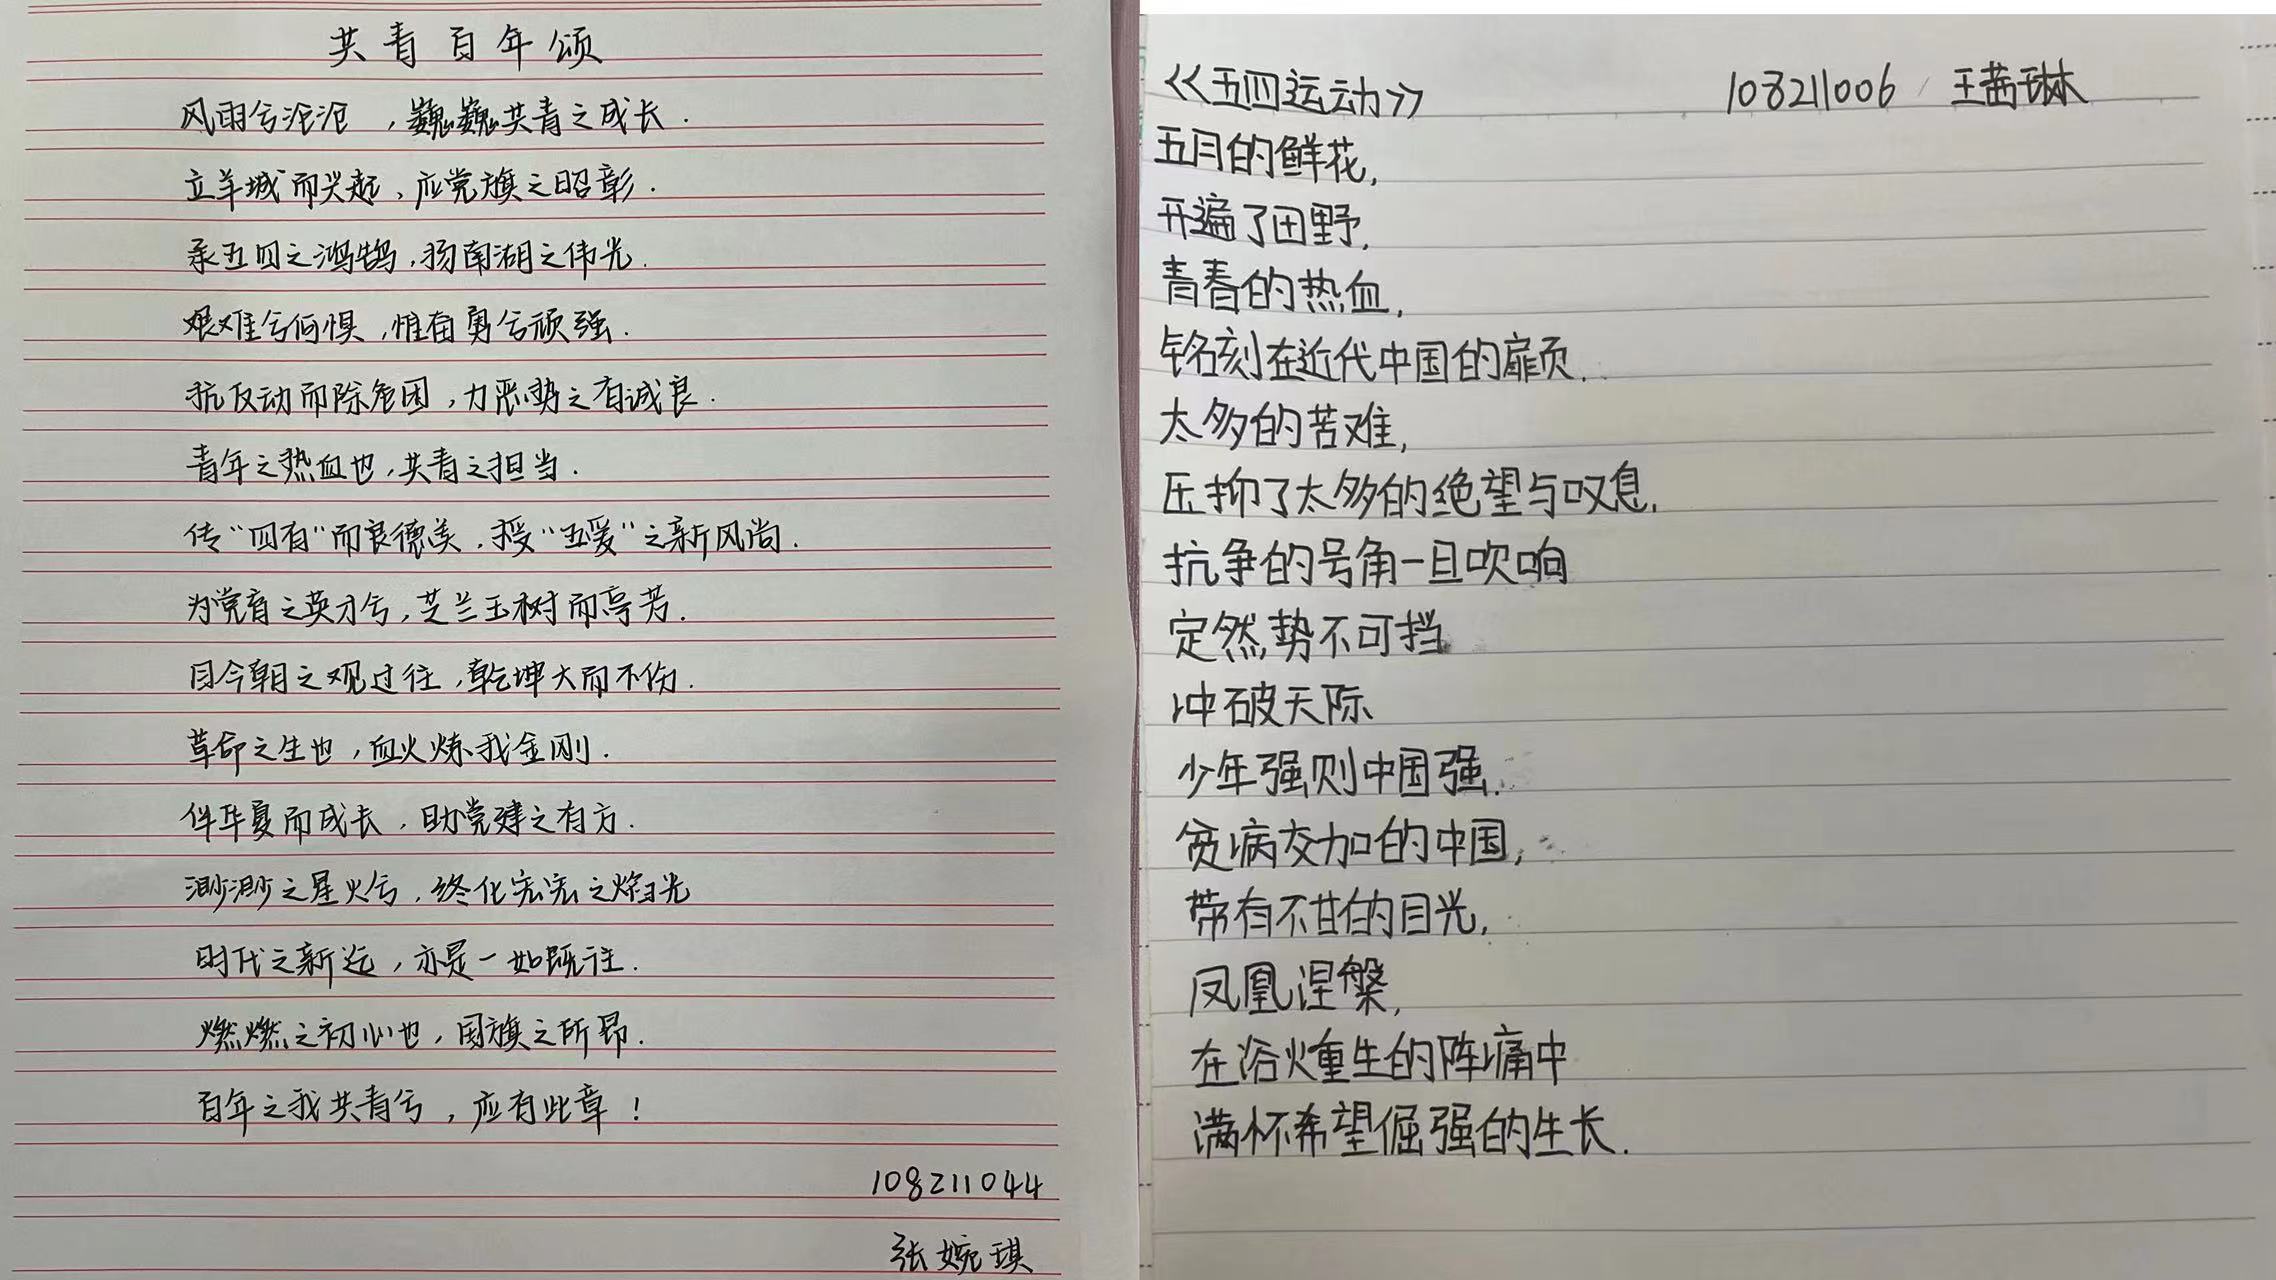 共青百年颂
风雨兮沧沧，巍巍共青之成长.
立羊城而兴起，应党旗之昭彰.
承五四之鸿鹄，扬南湖之伟光.
艰难兮何惧，惟奋勇兮顽强.
抗反动而除危困，力恶势之有诚良.
青年之热血也，共青之担当.
传“四有”而良德美，授“五爱”之新风尚.
为党育之英才兮，芝兰玉树而高芳.
目今朝之观过往，乾坤大而不伤.
革命之生也，血火炼我金刚.
伴华夏而成长，助党建之有方.
渺渺之星火兮，终化宏宏之焰光
时代之新运，亦是一如既往.
燃燃之初心也，国旗之所昂.
百年之我共青兮，应有此章！
108211044
张婉琪
《五四运动》 108211006 王茜琳
五月的鲜花,
开遍了田野,
青春的热血,
铭刻在近代中国的扉页.
太多的苦难,
压抑了太多的绝望与叹息,
抗争的号角一旦吹响
定然势不可挡
冲破天际
少年强则中国强.
贫病交加的中国,
带有不甘的目光,
凤凰涅槃,
在浴火重生的阵痛中
满怀希望倔强的生长.